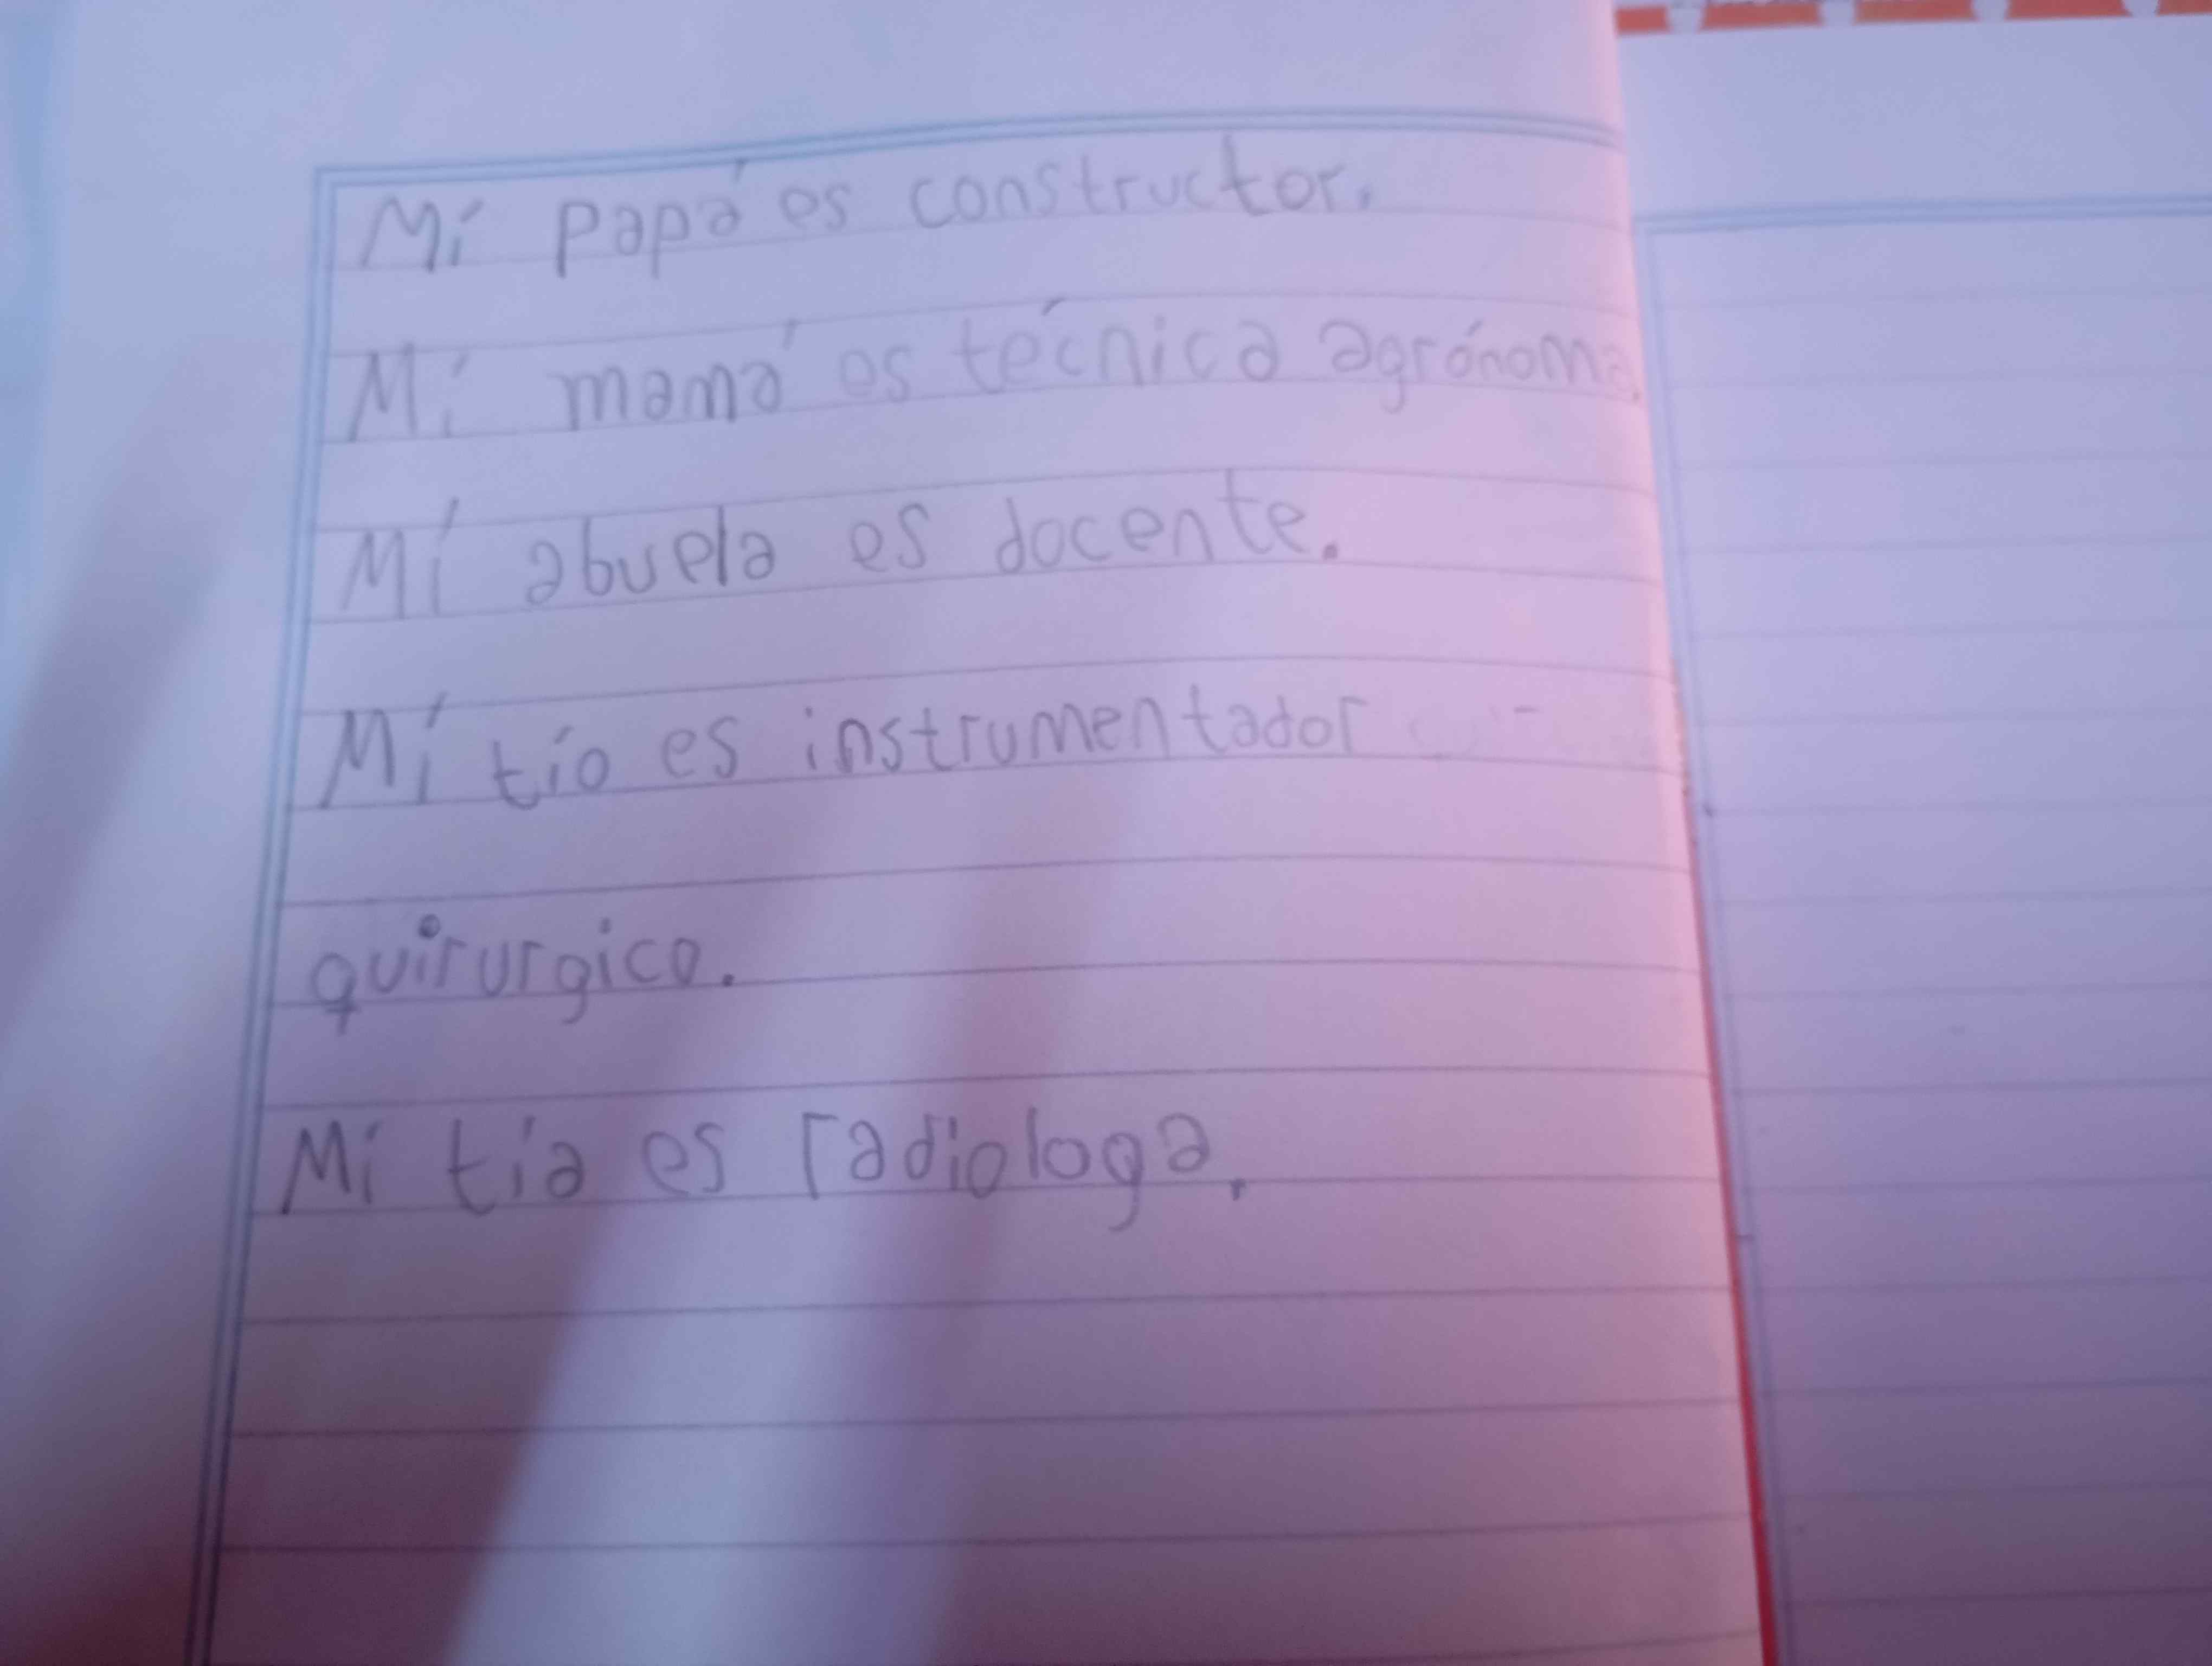 Mi papá es constructor.
Mi mamá es técnica agrónoma.
Mi abuela es docente.
Mi tío es instrumentador
quirurgico.
Mi tía es radiologa.